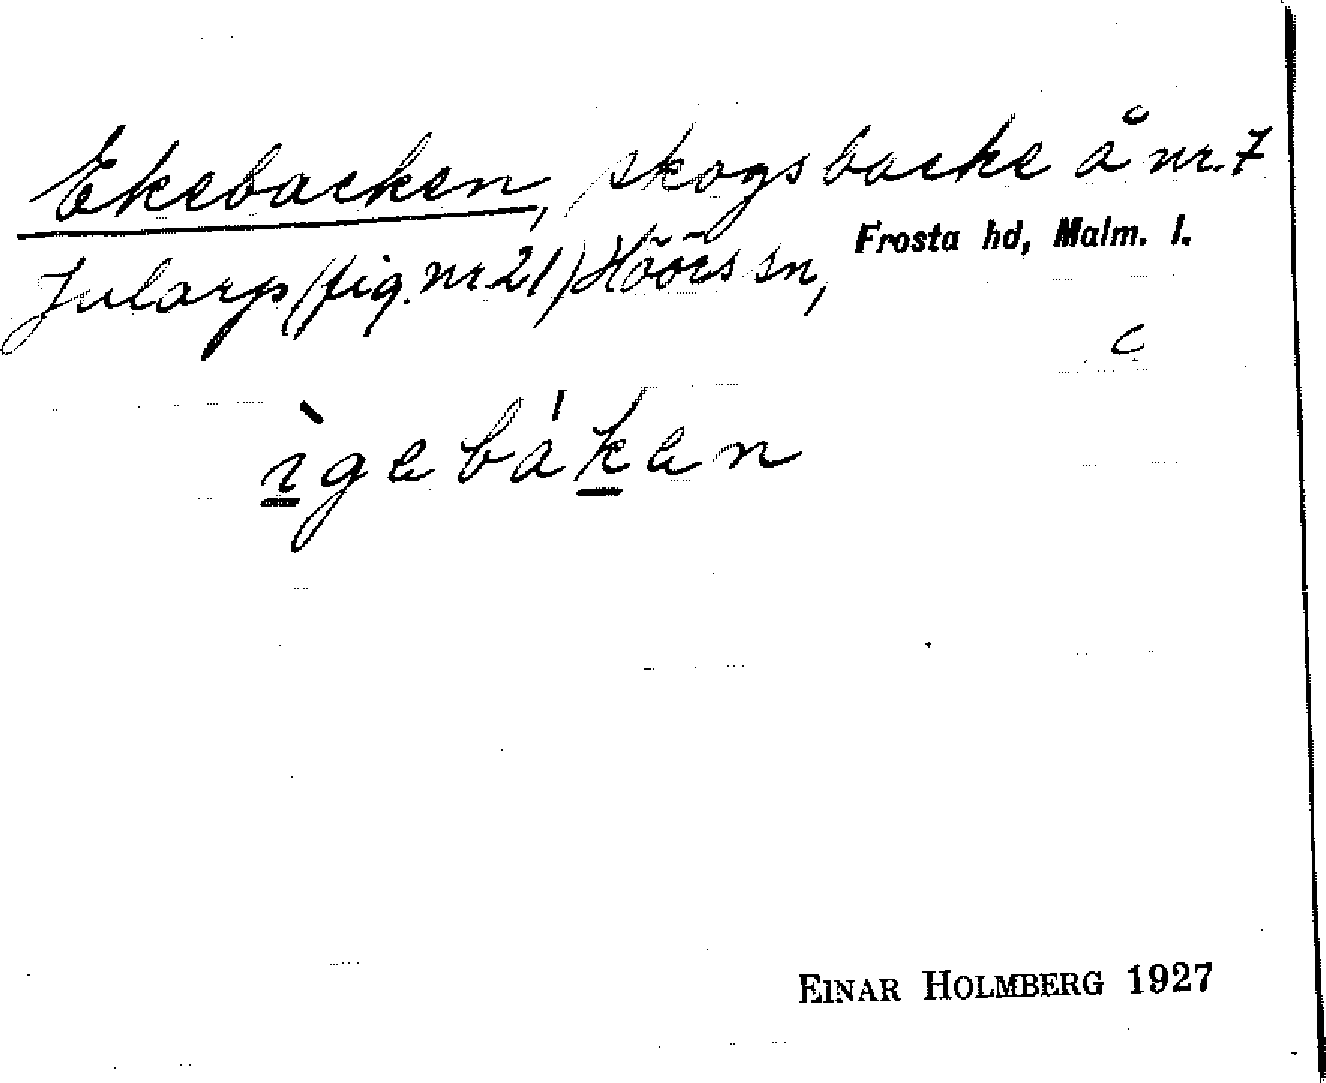 Ekebacken, skogsbacke å nr. 7
Jularp (fig. nr 21) Höörs sn, Frosta hd, Malm. l.
c
ìgebákan
EINAR HOLMBERG 1927